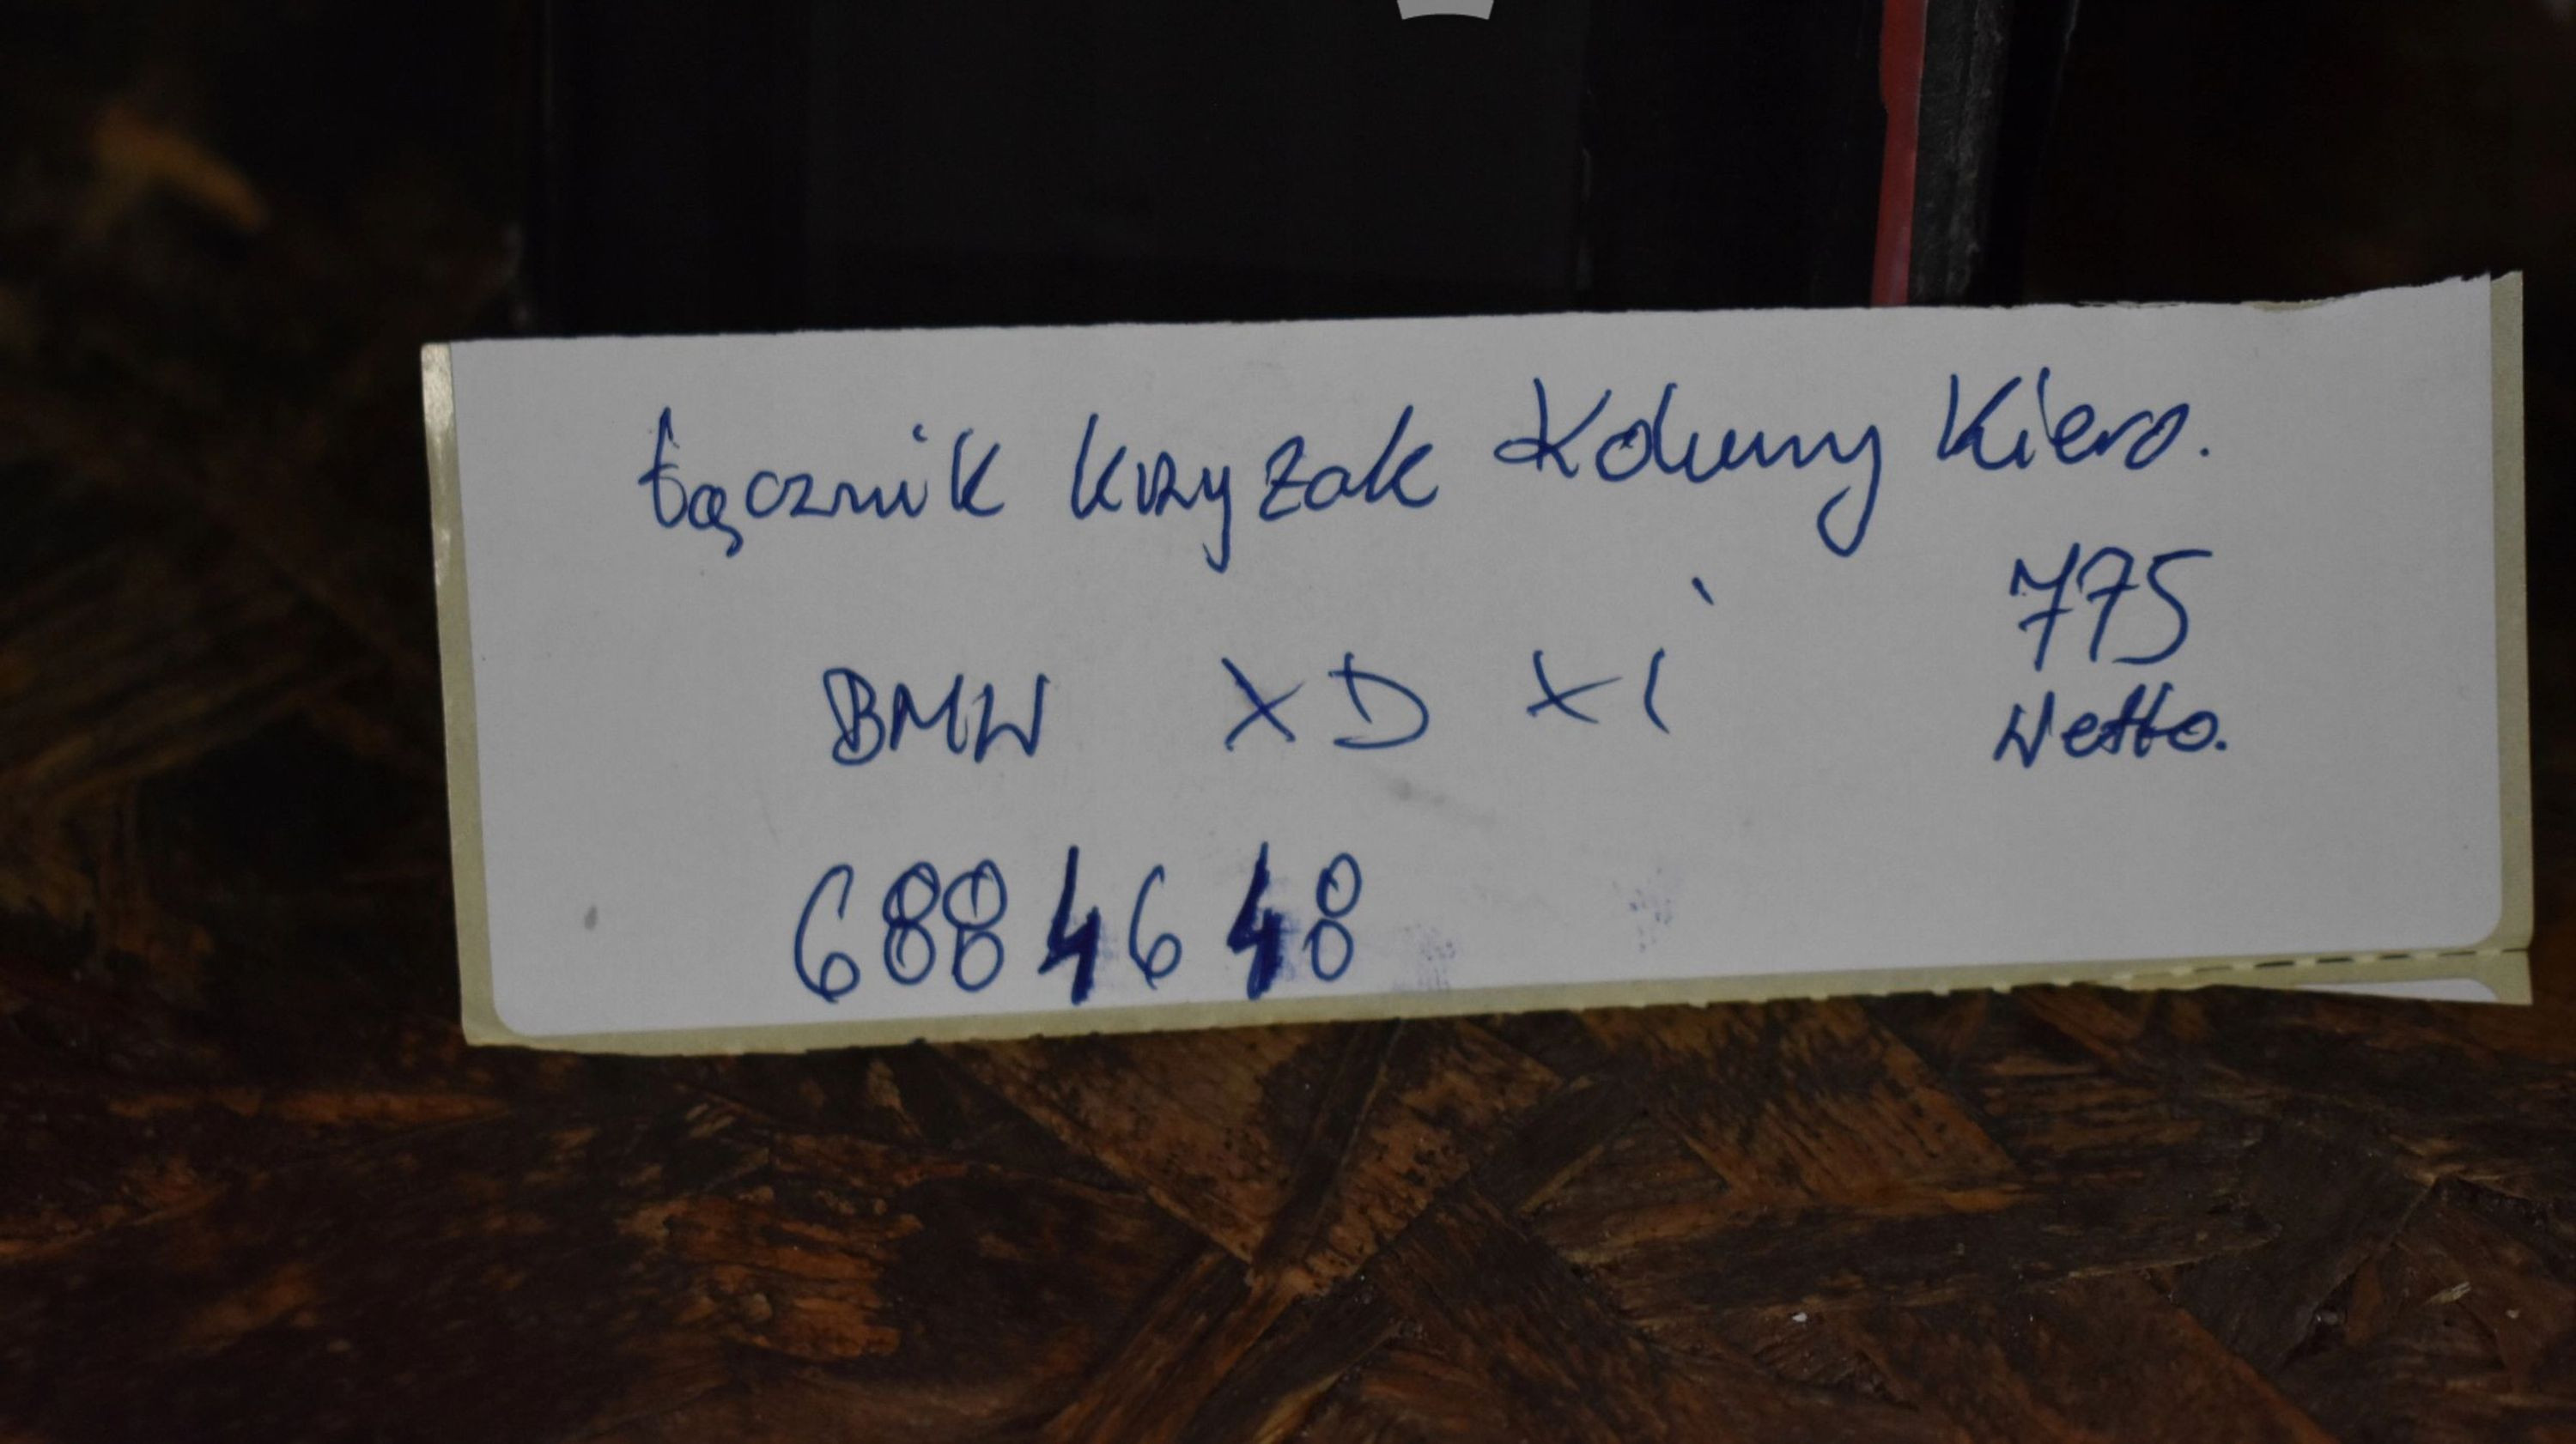 Łącznik krzyzak kolumny Kiero.
775
BMW XD Xi
Netto.
6884648